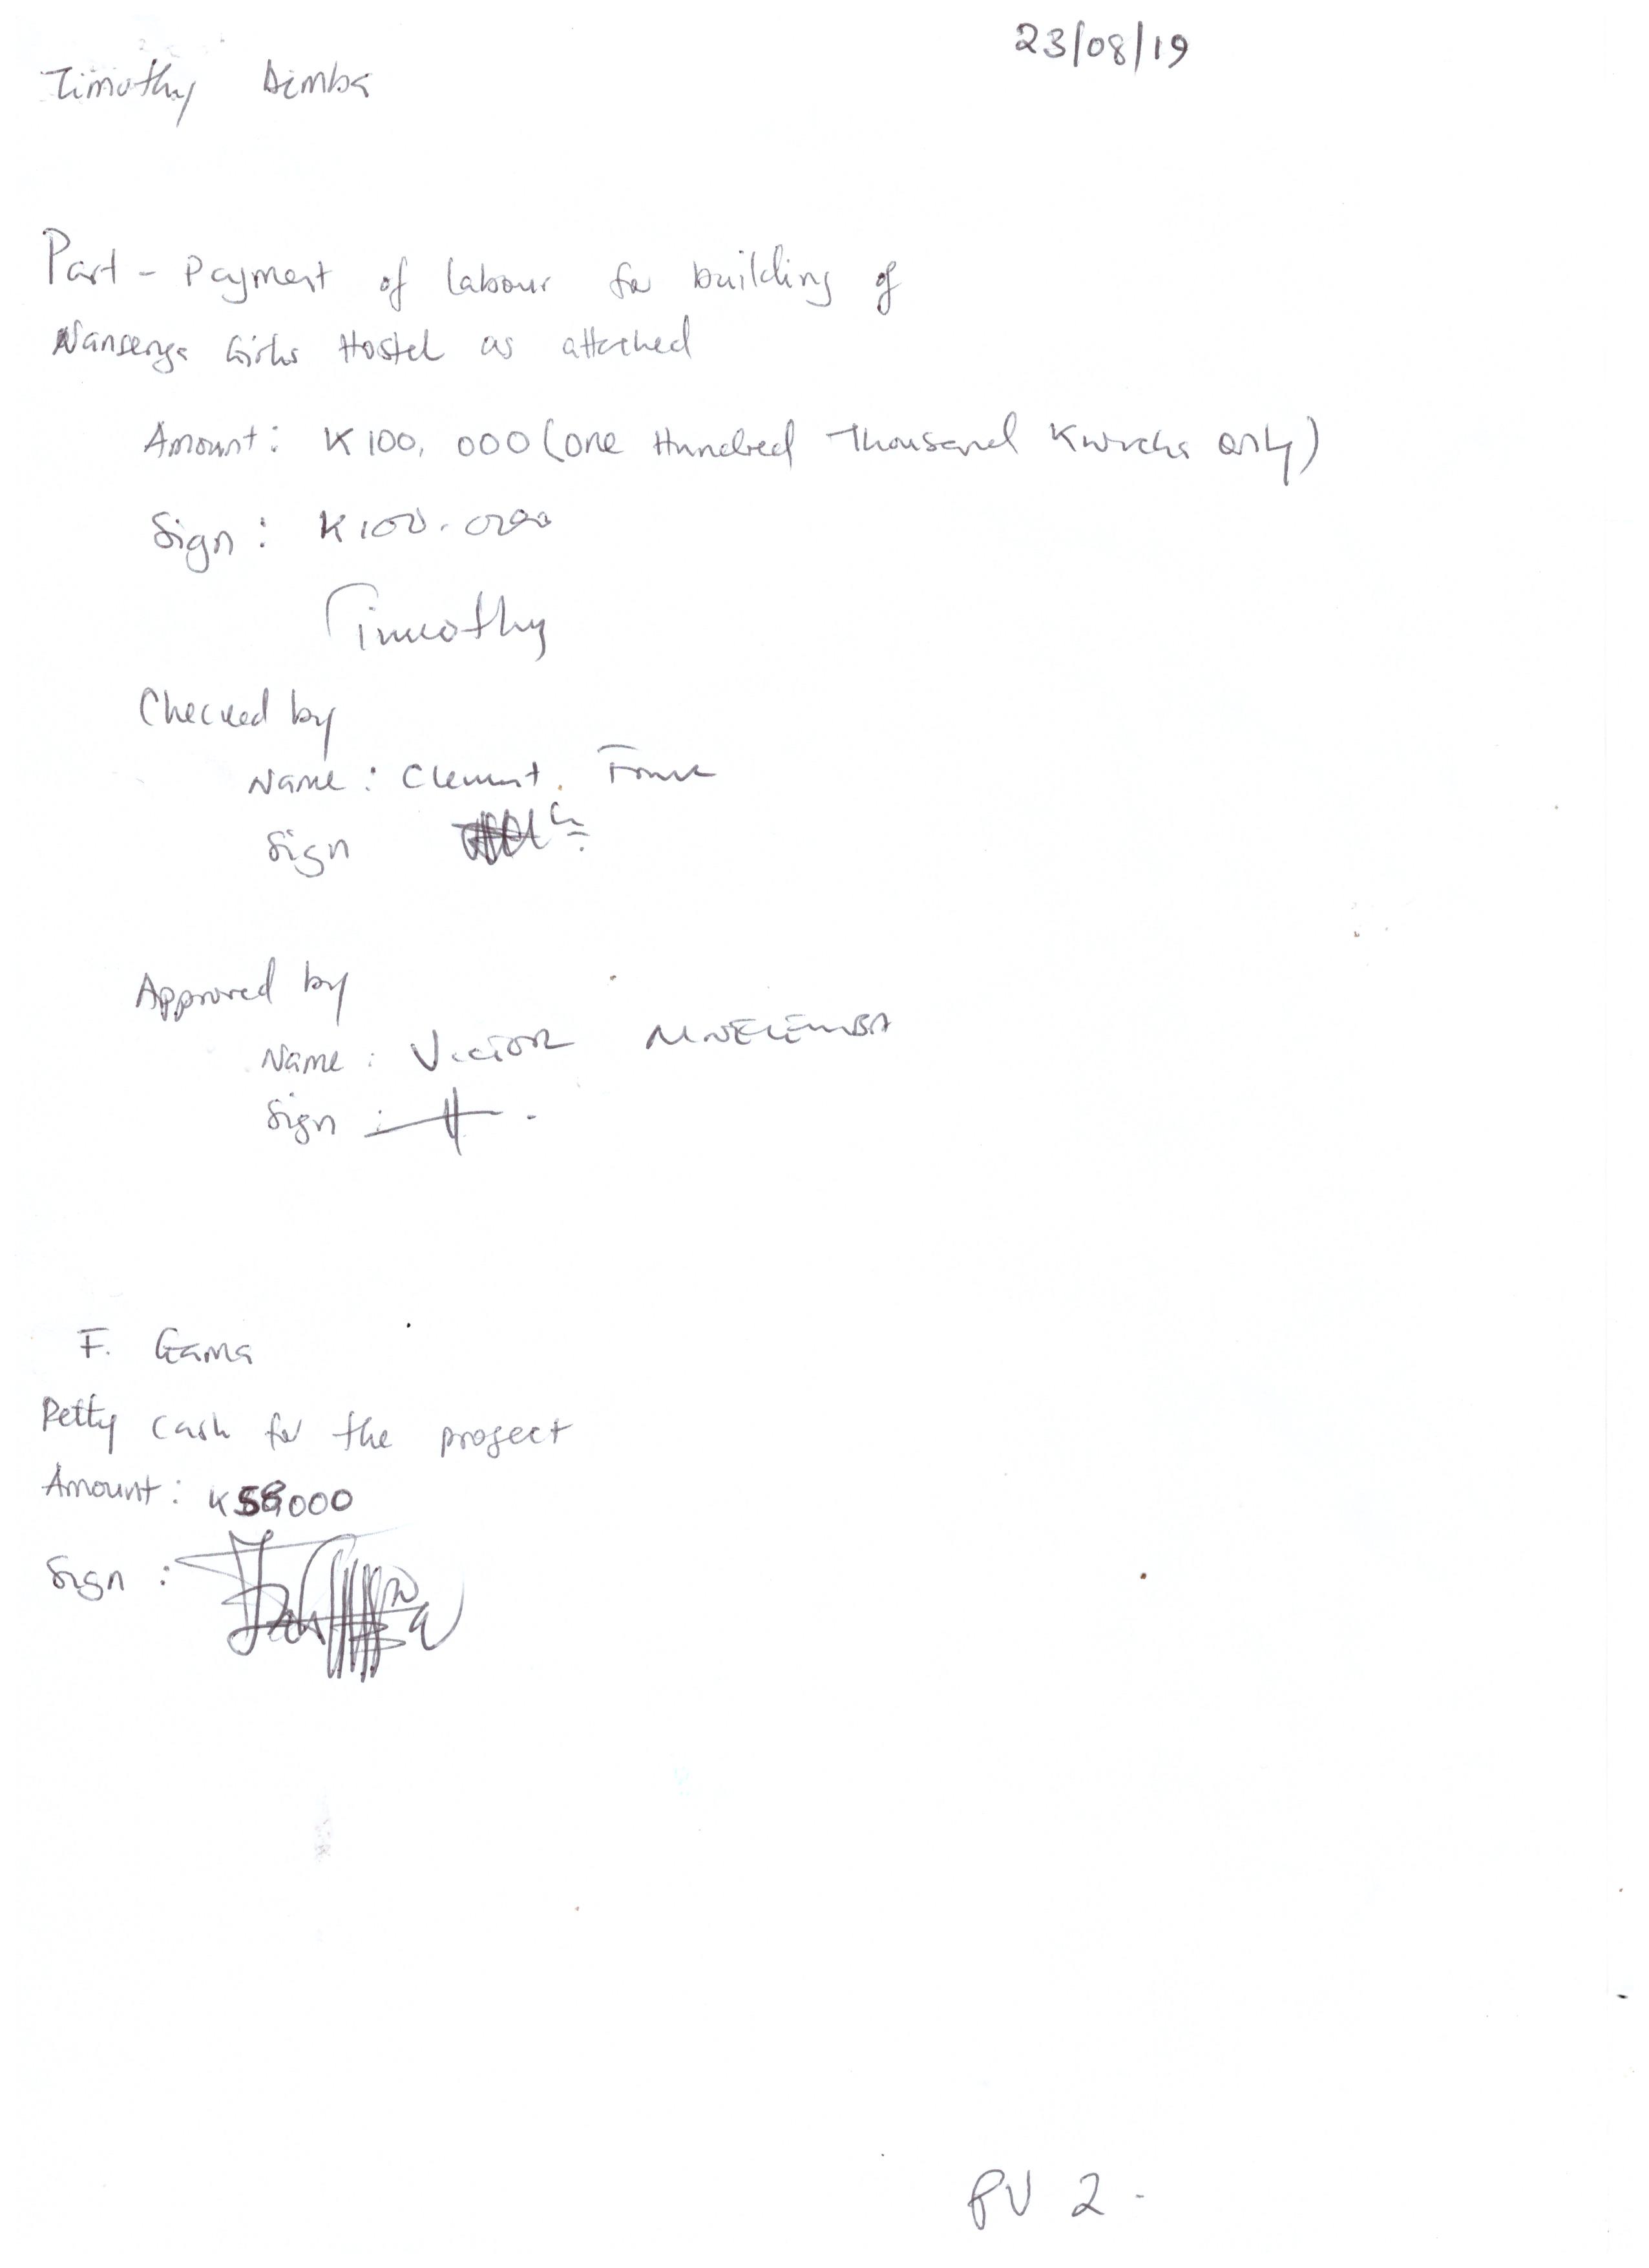 23/08/19
Timothy Dimba
Part - Payment of labour for building of
Nansenga Girls Hostel as attached
Amount: K100,000 (one Hundred Thousand Kwacha only)
Sign: K100.000
Timothy
Checked by
Name: Clement.
Sign
Approved by
Name: Victor
Sign:
F. Gama
Petty cash for the project
Amount: K
Sign:
PV 2